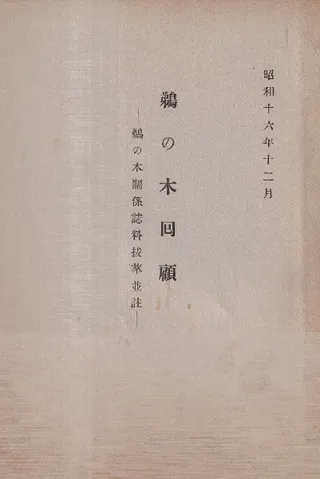 昭和十六年十二月
鵜の木回顧
―鵜の木關係誌料拔萃並註―